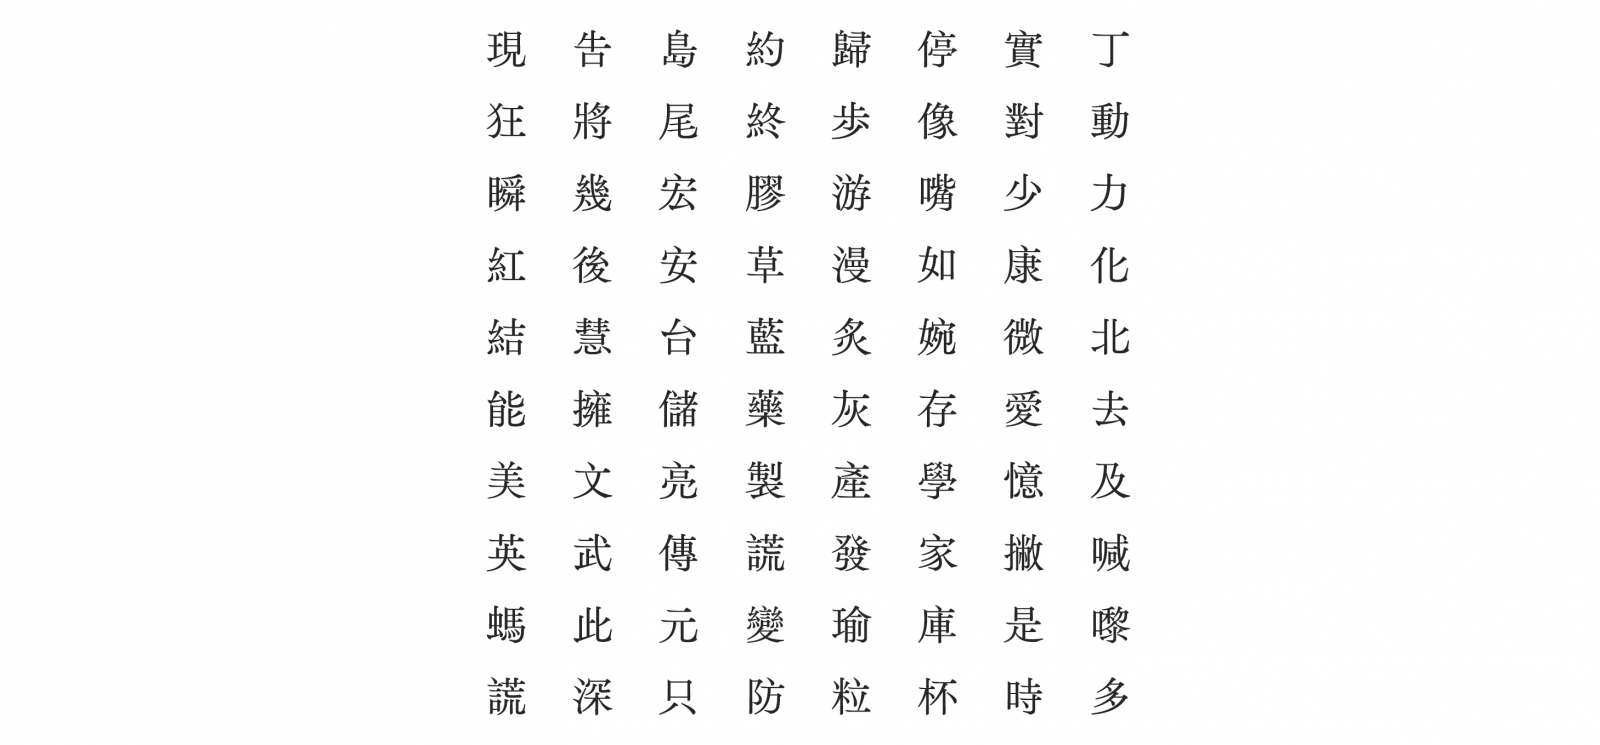 現告島約歸停實丁
狂將尾終歩像對動
瞬幾宏膠游嘴少力
紅後安草漫如康化
結慧台藍炙婉微北
能擁儲藥灰存愛去
美文亮製產學憶及
英武傳謊發家撇喊
螞此元變瑜庫是嚟
謊深只防粒杯時多